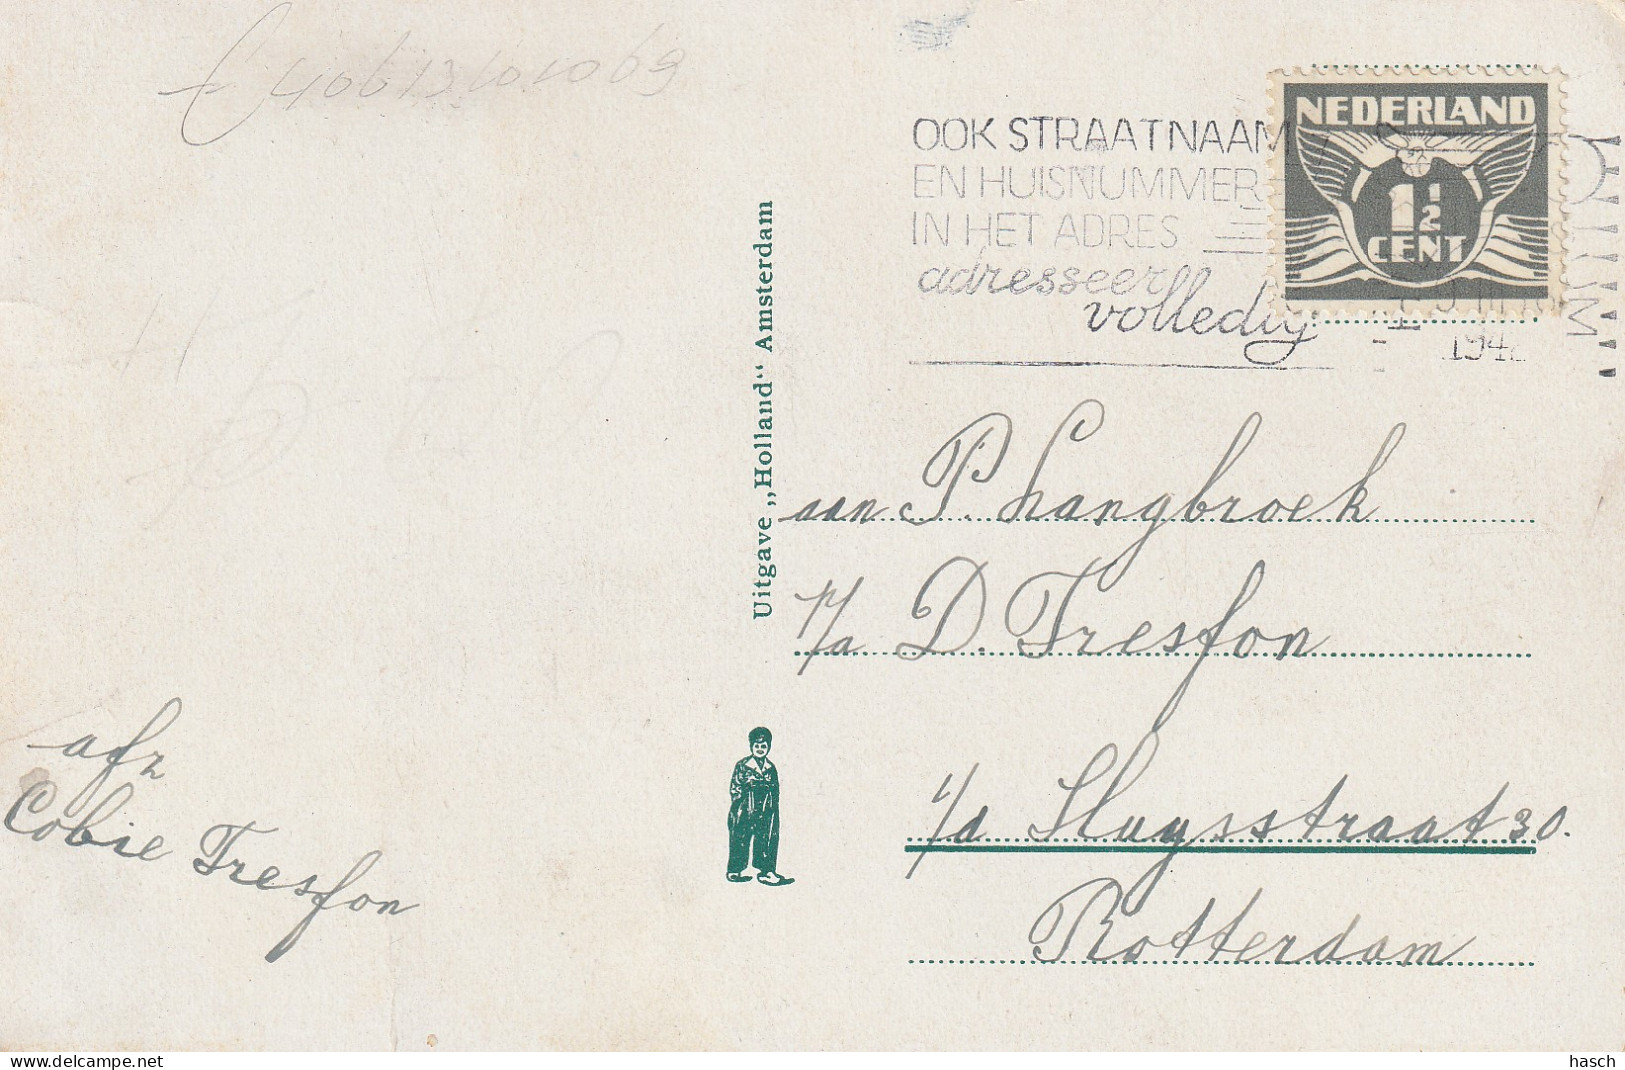 £ 40613101069
OOK STRAATNAAM
EN HUISNUMMER
IN HET ADRES
adresseer
volledig
NEDERLAND
1½
CENT
194
Uitgave „Holland“ Amsterdam
aan P. Langbroek
p/a D. Tresfon
v/d Sluysstraat 30.
Rotterdam
afz
Cobie Tresfon
delcampe.net
hasch